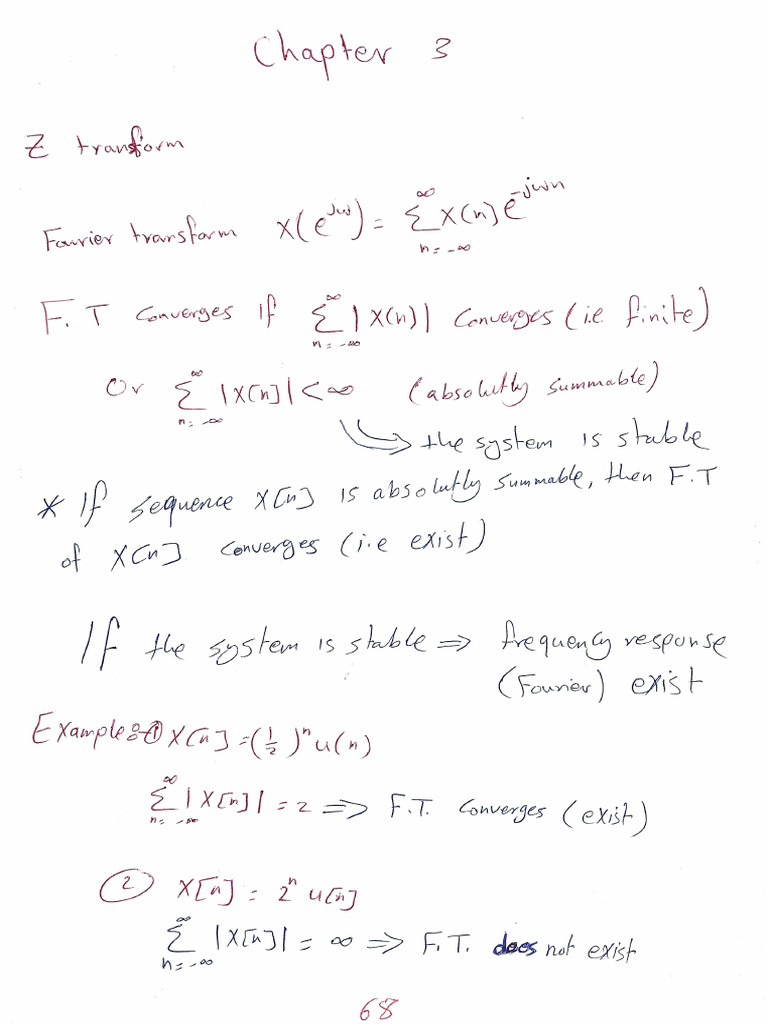 Chapter 3
Z transform
Fourier transform X(e^jω) = ∑_{n=-∞}^{∞} X[n] e^-jωn
F.T Converges If ∑_{n=-∞}^{∞} |X(n)| Converges (i.e. finite)
Or ∑_{n=-∞}^{∞} |X[n]| < ∞ (absolutly summable)
↪ the system is stable
* If sequence X[n] is absolutly summable, then F.T
of X[n] converges (i.e exist)
If the system is stable ⇒ frequency response
(Fourier) exist
Example:- ① X[n] = (1/2)^n u(n)
∑_{n=-∞}^{∞} |X[n]| = 2 ⇒ F.T. Converges (exist)
② X[n] = 2^n u[n]
∑_{n=-∞}^{∞} |X[n]| = ∞ ⇒ F.T. does not exist
68